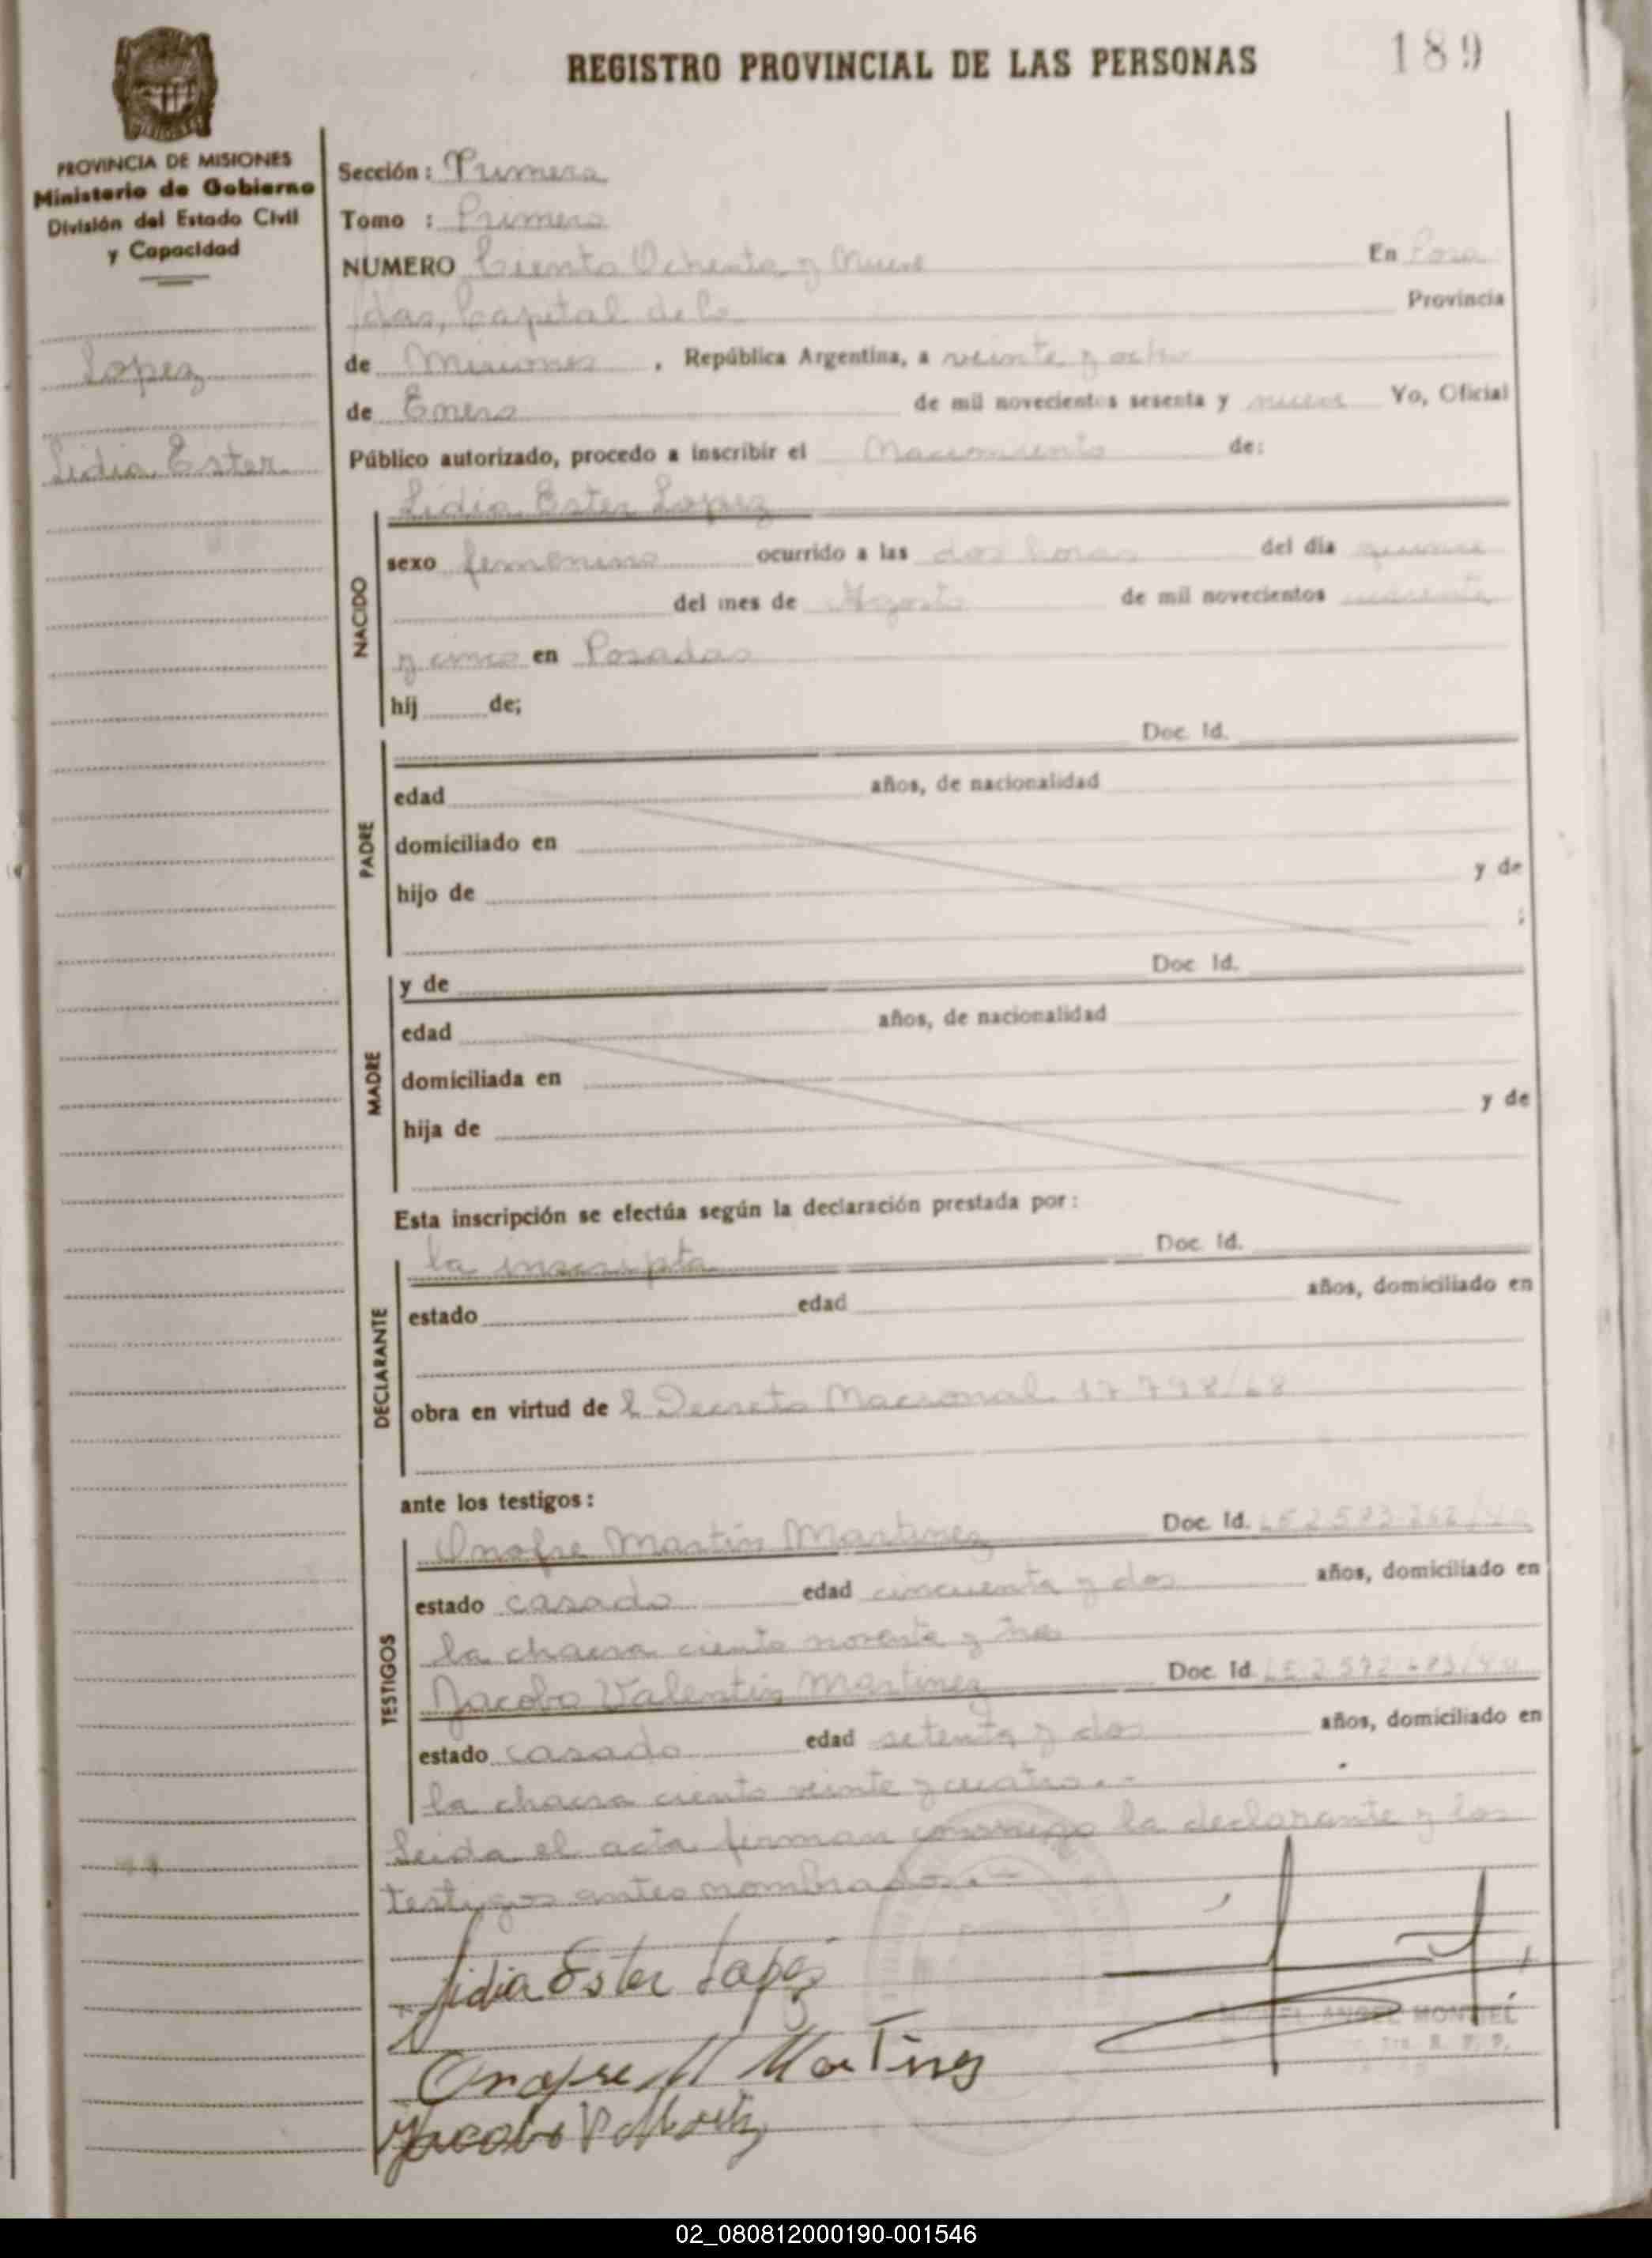 REGISTRO PROVINCIAL DE LAS PERSONAS
189
PROVINCIA DE MISIONES
Ministerio de Gobierno
División del Estado Civil
y Capacidad
Lopez
Lidia Ester
Sección: Primera
Tomo : Primero
NUMERO Ciento Ochenta y Nueve En Posa
das, Capital de la Provincia
de Misiones, República Argentina, a veinte y ocho
de Enero de mil novecientos sesenta y nueve Yo, Oficial
Público autorizado, procedo a inscribir el Nacimiento de:
NACIDO
Lidia Ester Lopez
sexo femenino ocurrido a las dos horas del día quince
del mes de Agosto de mil novecientos
y cinco en Posadas
hij de;
PADRE
Doc. Id.
edad años, de nacionalidad
domiciliado en
hijo de y de
;
MADRE
y de Doc. Id.
edad años, de nacionalidad
domiciliada en
hija de y de
Esta inscripción se efectúa según la declaración prestada por:
DECLARANTE
la inscripta Doc. Id.
estado edad años, domiciliado en
obra en virtud de l Decreto Nacional 17798/68
ante los testigos:
TESTIGOS
Onofre Martín Martinez Doc. Id.
estado casado edad cincuenta y dos años, domiciliado en
la chacra ciento noventa y tres
Jacobo Valentín Martinez Doc. Id.
estado casado edad setenta y dos años, domiciliado en
la chacra ciento veinte y cuatro.-
Leida el acta firman conmigo la declarante y los
testigos antes nombrados.-
Lidia Ester Lopez
Onofre M Martinez
Jacobo V
ANGEL
02_080812000190-001546